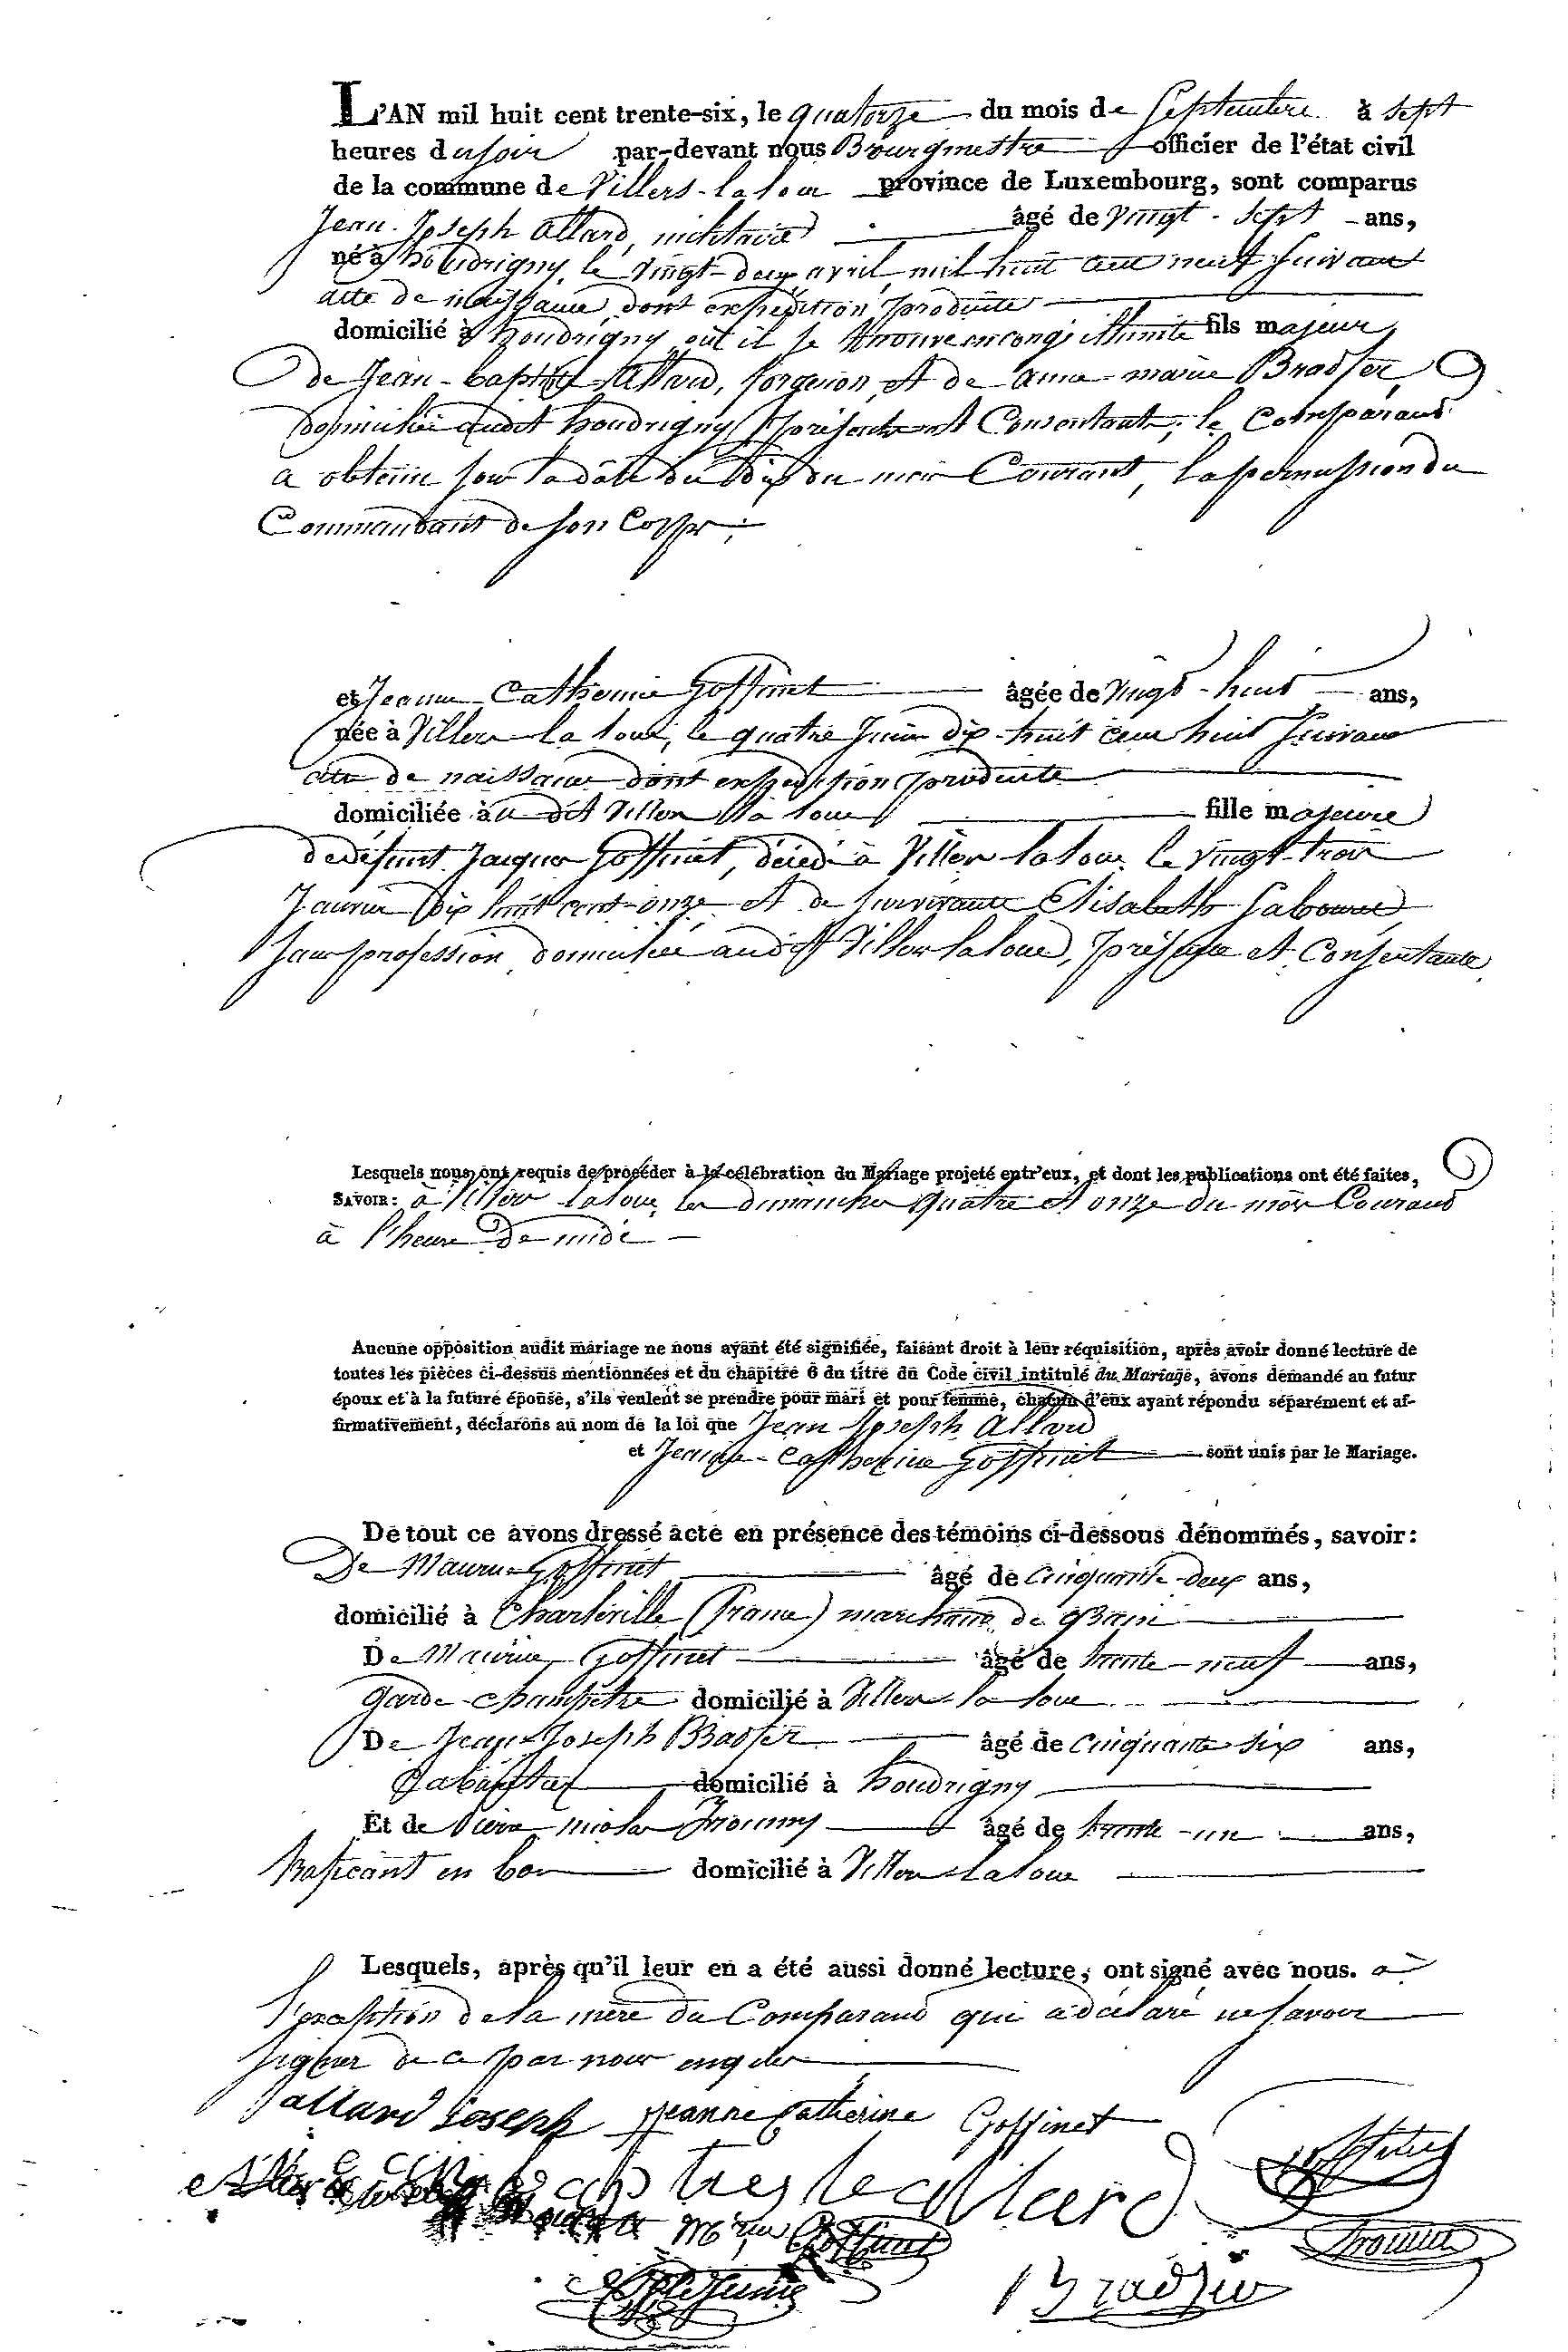 L'AN mil huit cent trente-six, le quatorze du mois de Septembre à sept
heures du soir par-devant nous Bourgmestre officier de l'état civil
de la commune de Villers-la loue province de Luxembourg, sont comparus
Jean Joseph Allard, militaire âgé de vingt-sept ans,
né à houdrigny, le vingt-deux avril mil huit cent neuf suivant
acte de naissance dont expédition produite
domicilié à houdrigny où il se trouve en congé illimité fils majeur
de Jean-baptiste Allard, forgeron et de anne-marie Bradfer
domiciliés audit houdrigny présents et Consentants; le Comparant
a obtenu sous la date du dix du mois Courant, la permission du
Commandant de son Corps;
et Jeanne Catherine Goffinet âgée de vingt-huit ans,
née à Villers la loue, le quatre Juin dix-huit cent huit suivant
acte de naissance dont expédition produite
domiciliée à u dit Villers la loue fille majeure
de défunt Jacques Goffinet, décédé à Villers la loue le vingt-trois
Janvier dix huit cent onze et de survivante Elisabeth
sans profession, domiciliée audit Villers la loue, présente et Consentante.
Lesquels nous ont requis de procéder à la célébration du Mariage projeté entr'eux, et dont les publications ont été faites,
SAVOIR: à Villers laloue, les dimanches quatre et onze du mois Courant
à l'heure de midi
Aucune opposition audit mariage ne nous ayant été signifiée, faisant droit à leur réquisition, après avoir donné lecture de
toutes les pièces ci-dessus mentionnées et du chapitre 6 du titre du Code civil intitulé du Mariage, avons demandé au futur
époux et à la future épouse, s'ils veulent se prendre pour mari et pour femme, chacun d'eux ayant répondu séparément et af-
firmativement, déclarons au nom de la loi que Jean Joseph Allard
et Jeanne-Catherine Goffinet sont unis par le Mariage.
De tout ce avons dressé acte en présence des témoins ci-dessous dénommés, savoir:
De Maurice Goffinet âgé de Cinquante-deux ans,
domicilié à Charleville (france) marchand de grain
De Maurice Goffinet âgé de trente-neuf ans,
garde-champêtre domicilié à Villers-la loue
De Jean Joseph Bradfer âgé de Cinquante six ans,
Cabaretier domicilié à houdrigny
Et de Pierre nicolas âgé de trente-un ans,
trafiquant en domicilié à Villers-laloue
Lesquels, après qu'il leur en a été aussi donné lecture, ont signé avec nous. à
l'exception de la mère du Comparant qui a déclaré ne savoir
signer de ce par nous enquise
allard Joseph Jeanne Catherine Goffinet
allard
Goffinet
Bradfer